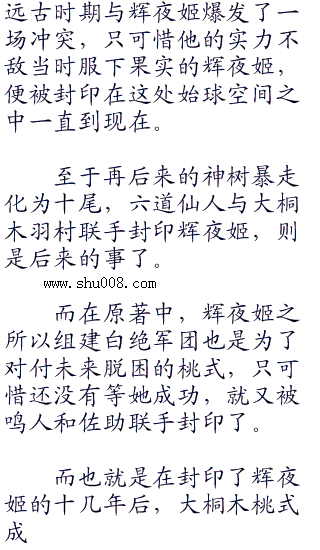 远古时期与辉夜姬爆发了一
场冲突，只可惜他的实力不
敌当时服下果实的辉夜姬，
便被封印在这处始球空间之
中一直到现在。
至于再后来的神树暴走
化为十尾，六道仙人与大桐
木羽村联手封印辉夜姬，则
是后来的事了。
www.shu008.com
而在原著中，辉夜姬之
所以组建白绝军团也是为了
对付未来脱困的桃式，只可
惜还没有等她成功，就又被
鸣人和佐助联手封印了。
而也就是在封印了辉夜
姬的十几年后，大桐木桃式
成